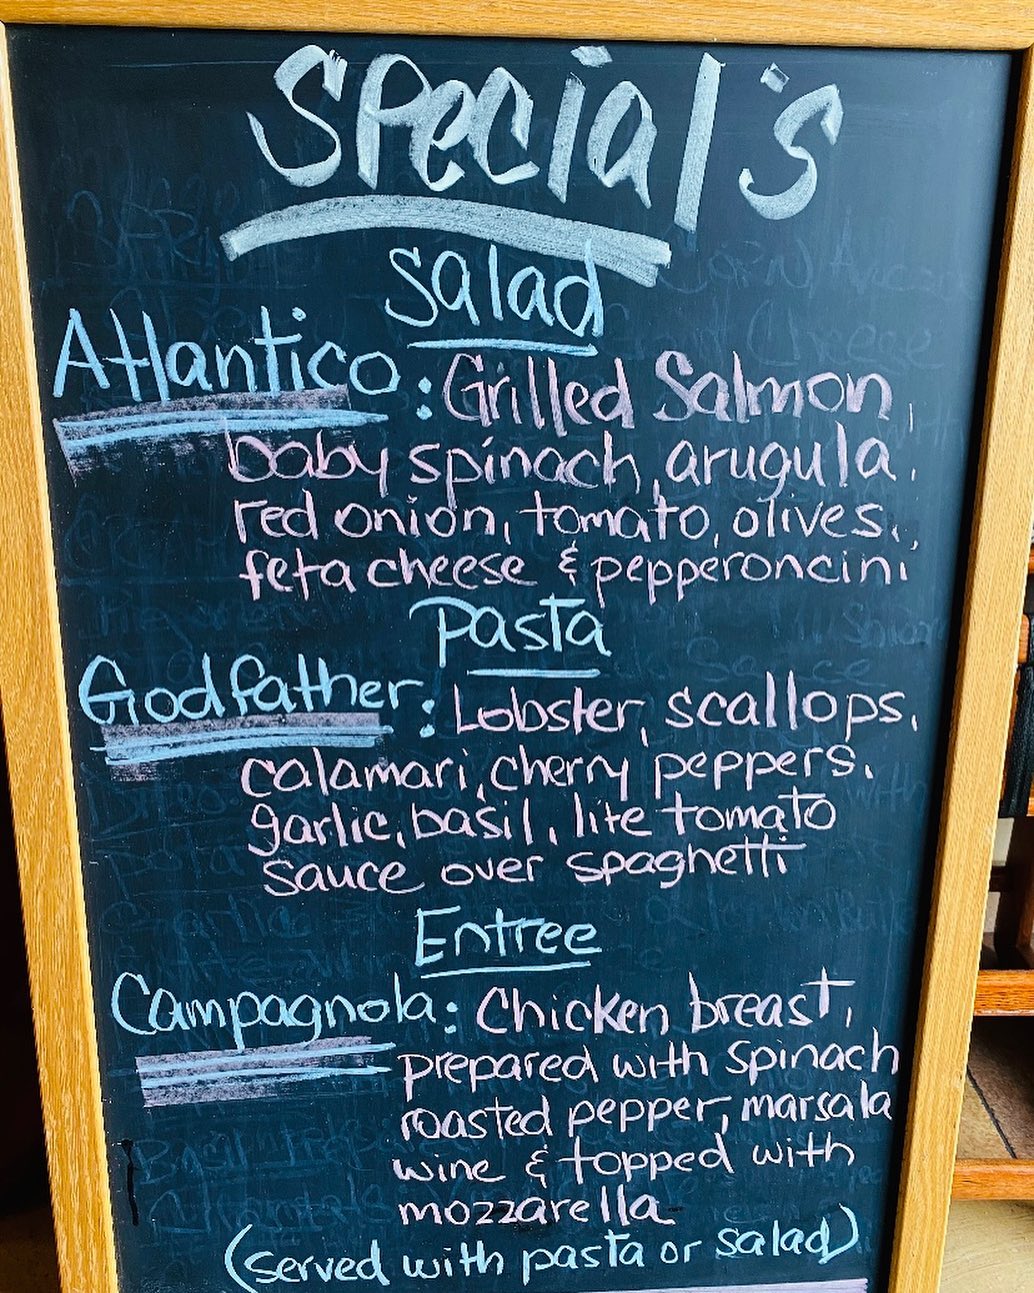 Special's
Salad
Atlantico: Grilled Salmon,
baby spinach, arugula,
red onion, tomato, olives,
feta cheese & pepperoncini
Pasta
Godfather: Lobster, scallops,
calamari, cherry peppers,
garlic, basil, lite tomato
sauce over spaghetti
Entree
Campagnola: Chicken breast,
prepared with spinach
roasted pepper, marsala
wine & topped with
mozzarella
(served with pasta or salad)